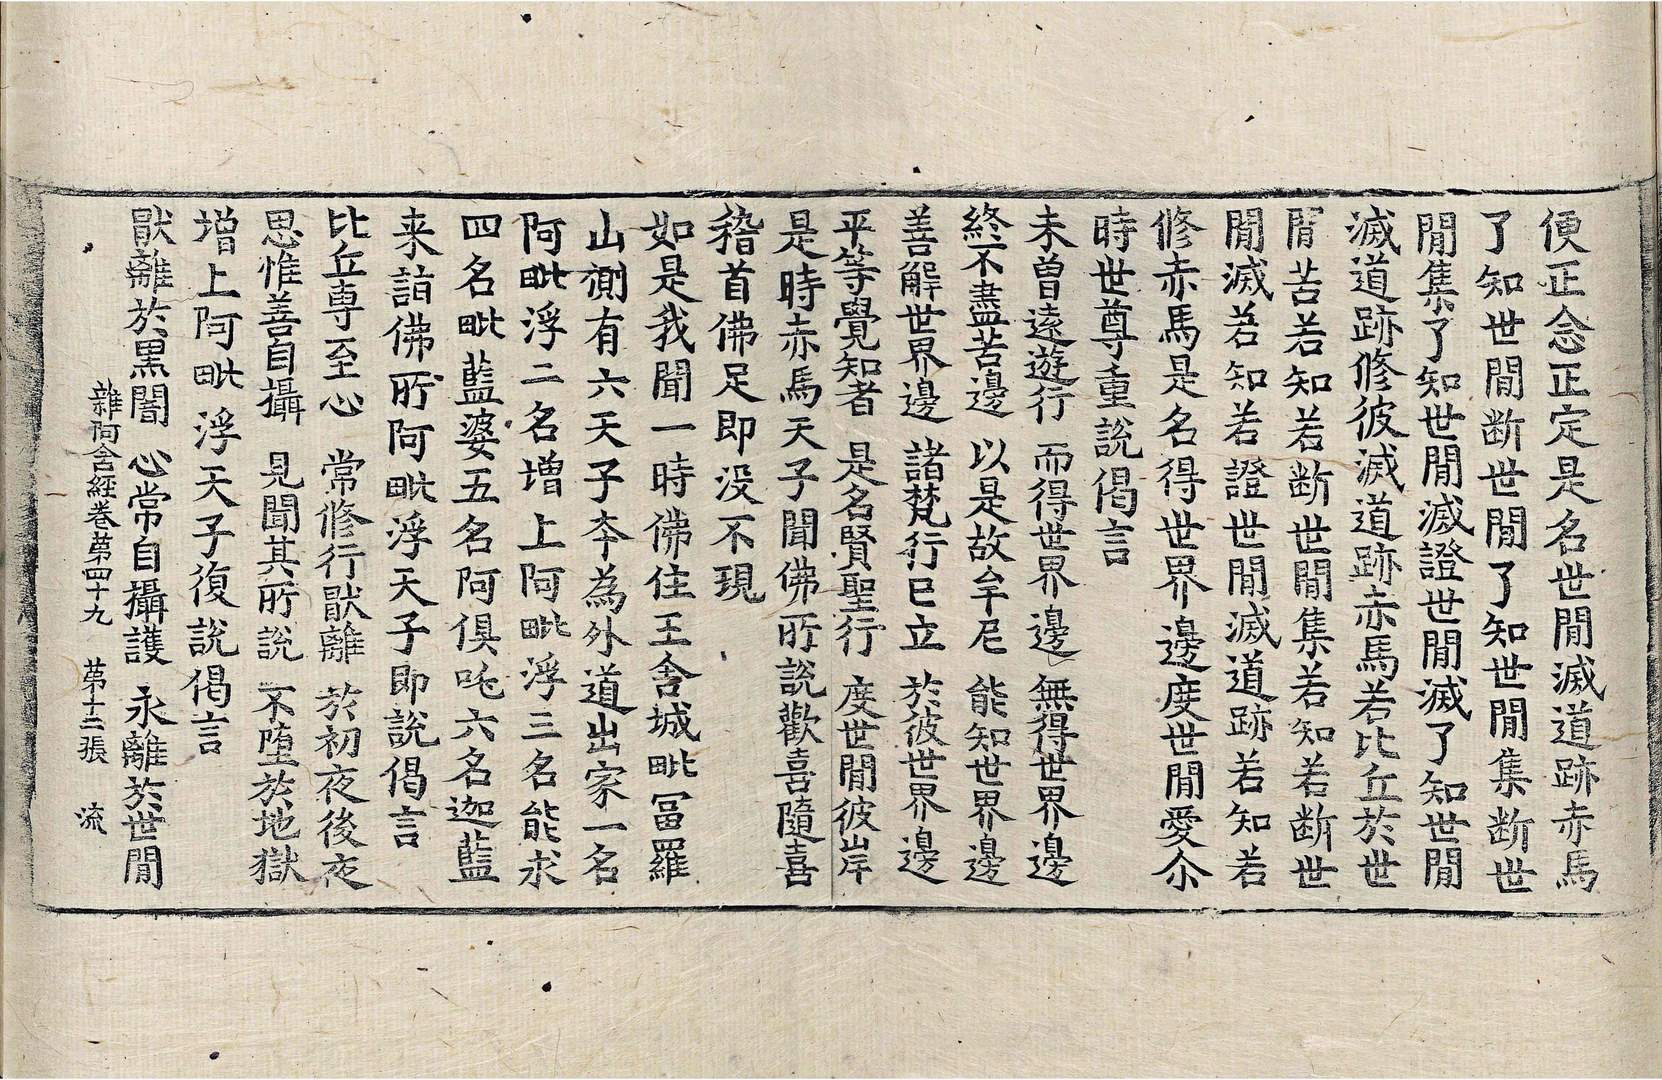 便正念正定是名世閒滅道跡赤馬
了知世閒断世閒了知世閒集断世
閒集了知世閒滅證世閒滅了知世閒
滅道跡修彼滅道跡赤馬若比丘於世
閒苦若知若断世閒集若知若断世
閒滅若知若證世閒滅道跡若知若
修赤馬是名得世界邊度世閒愛尒
時世尊重說偈言
未曽遠遊行 而得世界邊 無得世界邊
終不盡苦邊 以是故牟尼 能知世界邊
善解世界邊 諸梵行已立 於彼世界邊
平等覺知者 是名賢聖行 度世閒彼岸
是時赤馬天子聞佛所說歡喜隨喜
稽首佛足即没不現
如是我聞一時佛住王舍城毗冨羅
山側有六天子夲為外道出家一名
阿毗浮二名增上阿毗浮三名能求
四名毗藍婆五名阿俱吒六名迦藍
来詣佛所阿毗浮天子即說偈言
比丘専至心 常修行猒離 於初夜後夜
思惟善自攝 見聞其所說 不墮於地獄
增上阿毗浮天子復說偈言
猒離於黒闇 心常自攝護 永離於世閒
雜阿含經卷苐四十九 苐十二張 流